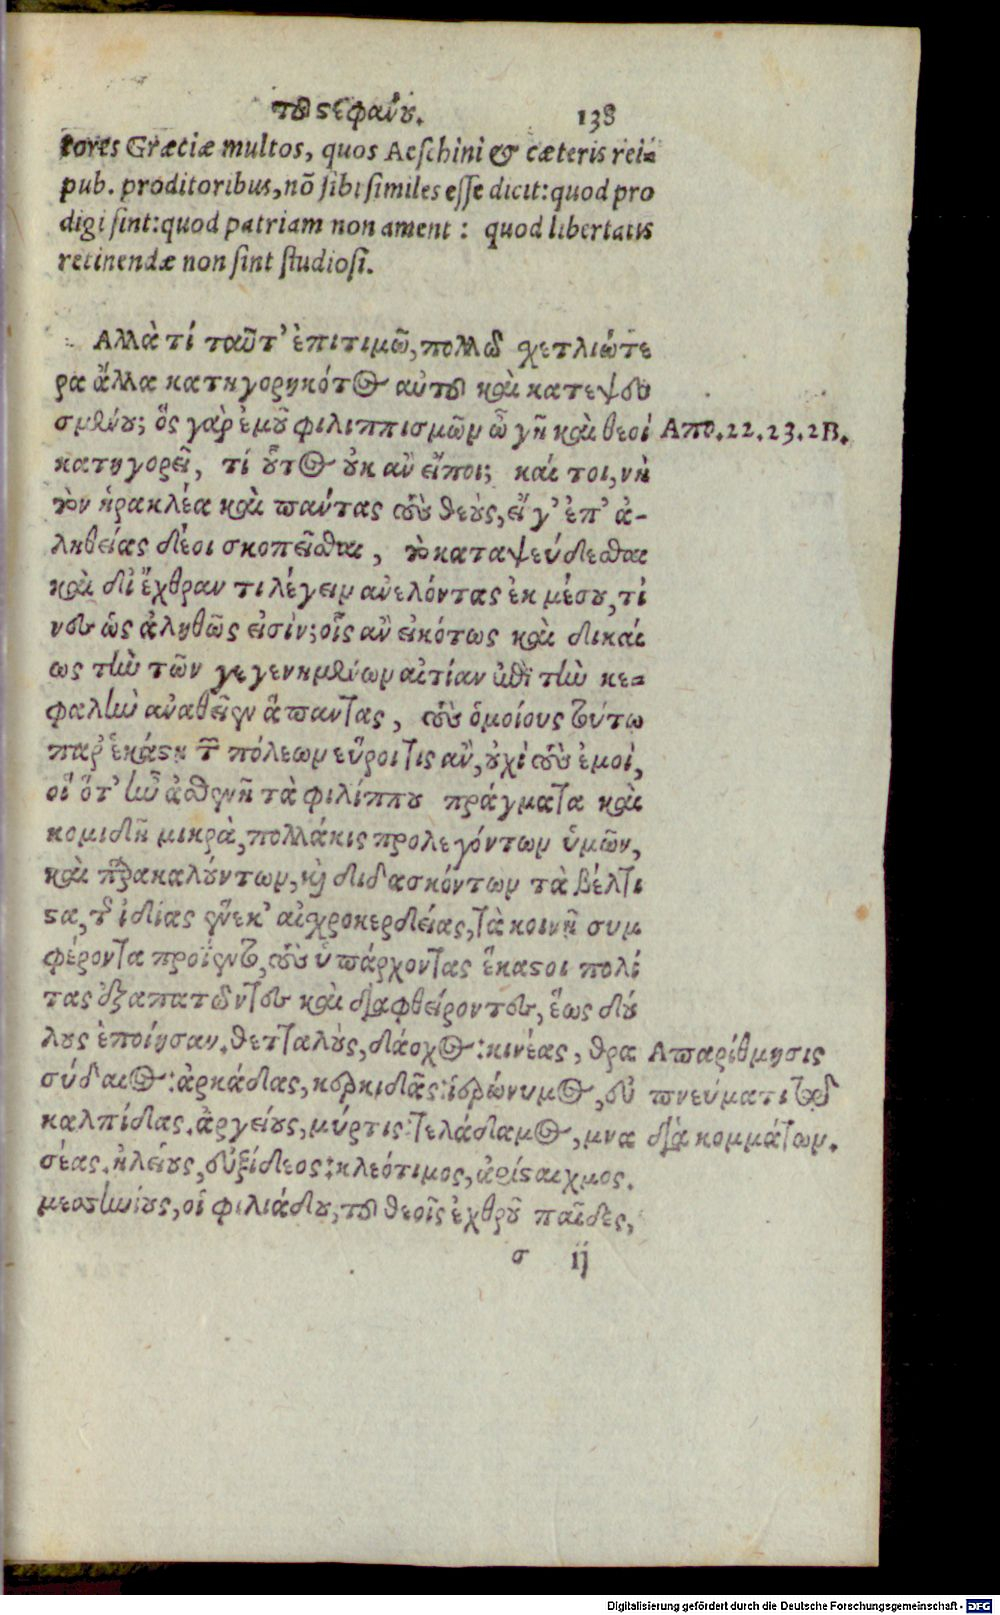 τοῦ στεφάνου. 138
tores Græciæ multos, quos Aeschini & cæteris rei=
pub. proditoribus, nō sibi similes esse dicit: quod pro
digi sint: quod patriam non ament: quod libertatis
retinendæ non sint studiosi.
Αλλὰ τί ταῦτ' ἐπιτιμῶ, πολλῷ χετλιώτε
ρα ἄλλα κατηγορηκότος αὐτοῦ καὶ κατεψευ
σμένου; ὃς γὰρ ἐμοῦ φιλιππισμὸν ὦ γῆ καὶ θεοί
κατηγορεῖ, τί οὗτος οὐκ ἂν εἴποι; καί τοι, νὴ
τὸν ἡρακλέα καὶ πάντας τοὺς θεοὺς, εἴ γ' ἐπ' ἀ-
ληθείας δέοι σκοπεῖσθαι, τὸ καταψεύδεσθαι
καὶ δι' ἔχθραν τι λέγειν ἀνελόντας ἐκ μέσου, τί
νες ὡς ἀληθῶς εἰσὶν; οἷς ἂν εἰκότως καὶ δικαί
ως τὴν τῶν γεγενημένων αἰτίαν ἐπὶ τὴν κε=
φαλὴν ἀναθεῖεν ἅπαντες, τοὺς ὁμοίους τούτῳ
παρ' ἑκάστῃ τῶν πόλεων εὕροι τις ἂν, οὐχὶ τοὺς ἐμοί,
οἳ ὅτ' ἦν ἀσθενῆ τὰ φιλίππου πράγματα καὶ
κομιδῆ μικρὰ, πολλάκις προλεγόντων ὑμῶν,
καὶ παρακαλούντων, καὶ διδασκόντων τὰ βέλτι
στα, τῆς ἰδίας ἕνεκ' αἰχροκερδείας, τὰ κοινῇ συμ
φέροντα προΐεντο, τοὺς ὑπάρχοντας ἕκαστοι πολί
τας ἐξαπατῶντες καὶ διαφθείροντες, ἕως δού
λους ἐποίησαν. θετταλοὺς, δάοχος: κινέας, θρα
σύδαιος: ἀρκάδας, κερκιδᾶς: ἱερώνυμος, εὐ
καλπίδας. ἀργείους, μύρτις: τελάδαμος, μνα
σέας. ἠλείους, εὐξίδεος: κλεότιμος, ἀρίσταιχμος.
μεσσηνίους, οἱ φιλιάδου, τοῦ θεοῖς ἐχθροῦ παῖδες,
σ ij
Απο. 22. 23. 2B.
Απαρίθμησις
πνεύματι
διὰ κομμάτων.
Digitalisierung gefördert durch die Deutsche Forschungsgemeinschaft - DFG